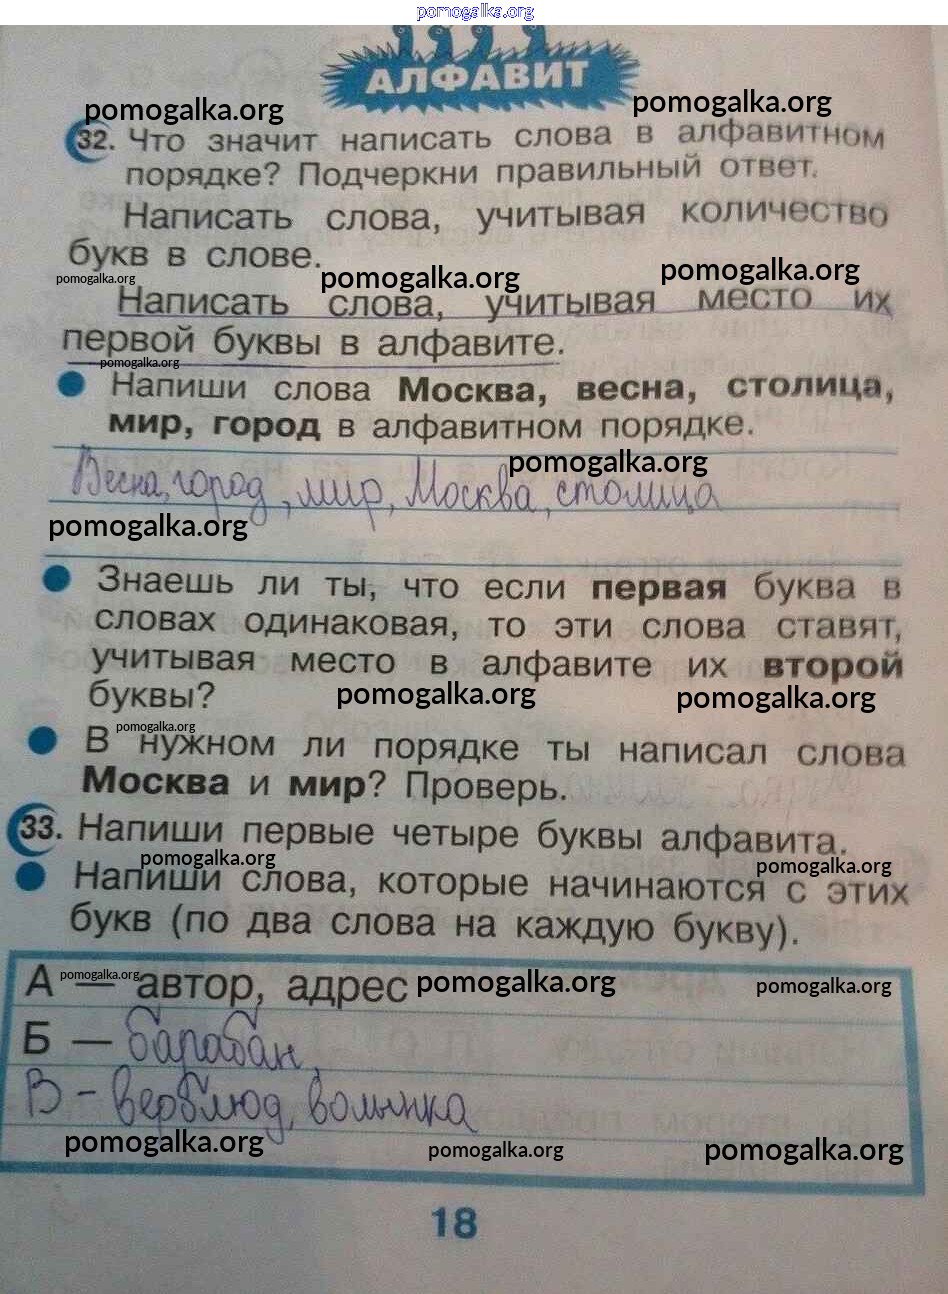 pomogalka.org
АЛФАВИТ
pomogalka.org pomogalka.org
32. Что значит написать слова в алфавитном
порядке? Подчеркни правильный ответ.
Написать слова, учитывая количество
букв в слове.
pomogalka.org pomogalka.org pomogalka.org
Написать слова, учитывая место их
первой буквы в алфавите.
pomogalka.org
Напиши слова Москва, весна, столица,
мир, город в алфавитном порядке.
pomogalka.org
Весна, город, мир, Москва, столица
pomogalka.org
Знаешь ли ты, что если первая буква в
словах одинаковая, то эти слова ставят,
учитывая место в алфавите их второй
буквы?
pomogalka.org pomogalka.org
pomogalka.org
В нужном ли порядке ты написал слова
Москва и мир? Проверь.
33. Напиши первые четыре буквы алфавита.
pomogalka.org pomogalka.org
Напиши слова, которые начинаются с этих
букв (по два слова на каждую букву).
pomogalka.org pomogalka.org pomogalka.org
А — автор, адрес
Б — барабан,
В - верблюд, волынка
pomogalka.org pomogalka.org pomogalka.org
18